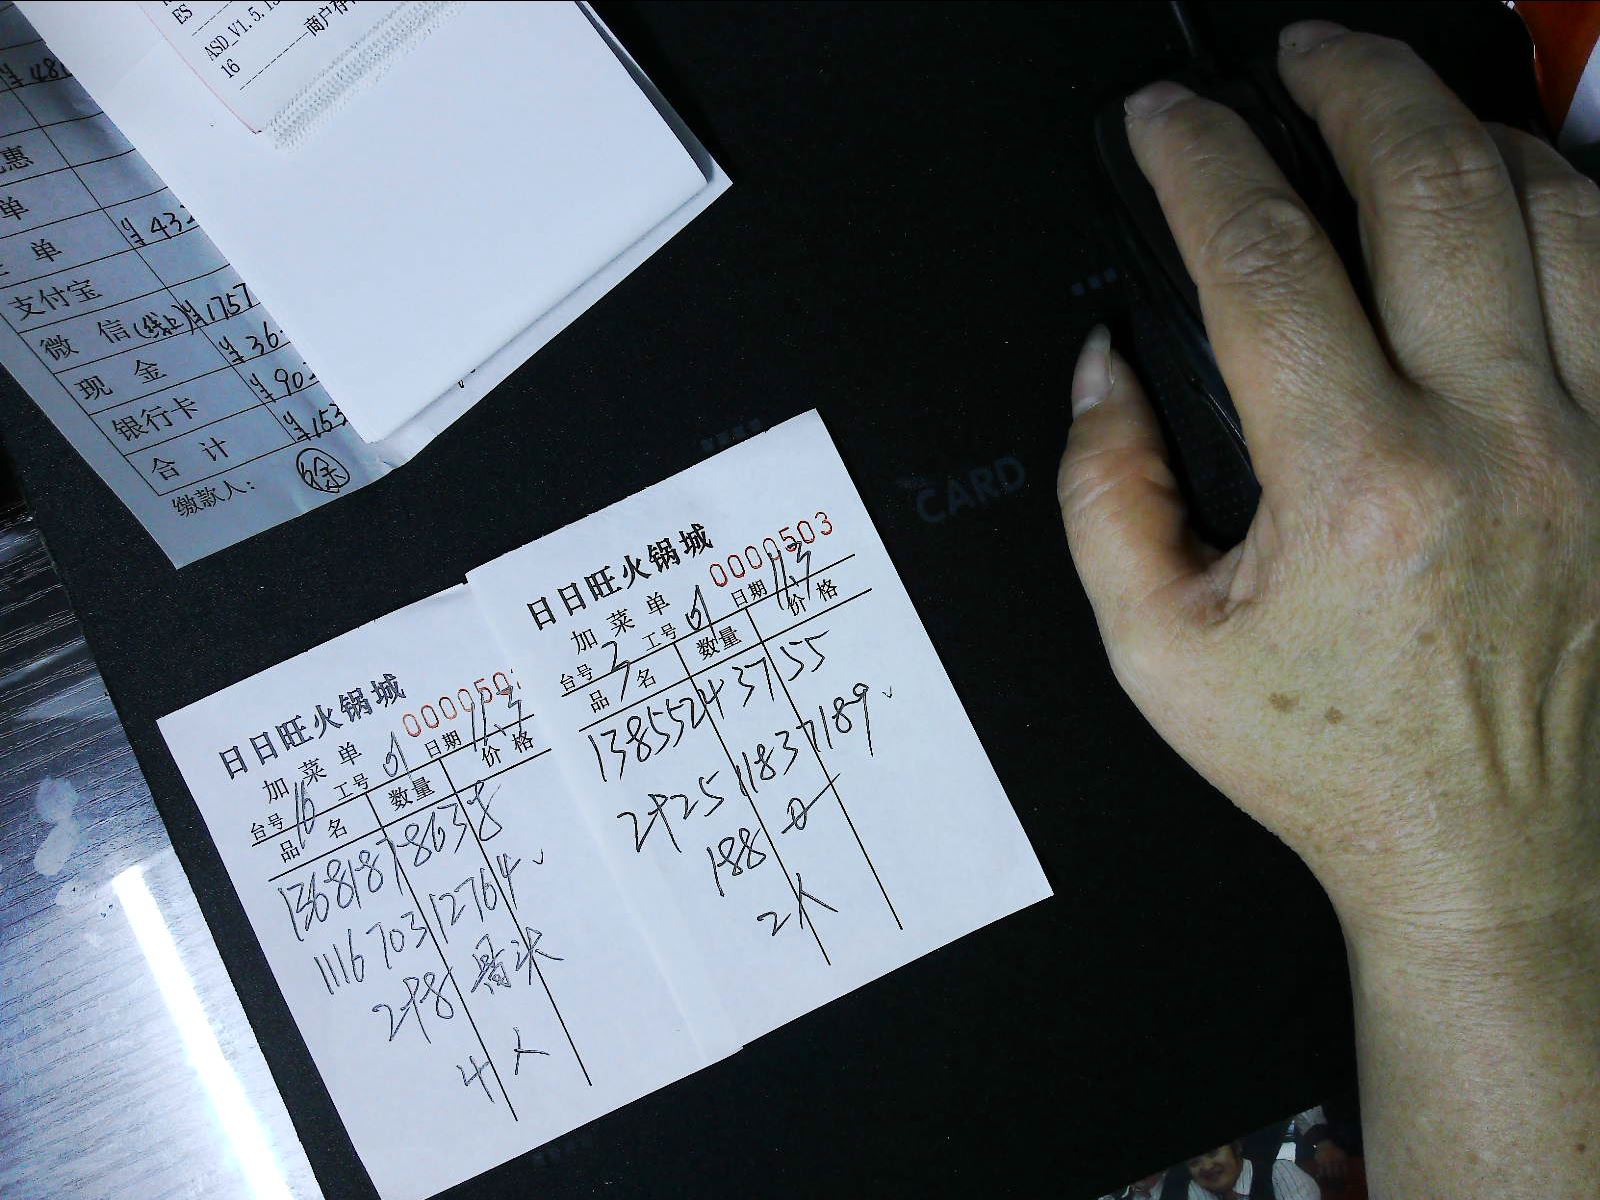 ES
ASD_V1.5.13
16
惠
单
单 ¥433
支付宝
微 信(线上) ¥1757
现 金 ¥36
银行卡 ¥90
合 计 ¥153
缴款人: 徐
CARD
日日旺火锅城
0000503
加菜单
台号 2 工号 01 日期 11.3
品名 数量 价格
13855243755
2425 11837189
188
2人
日日旺火锅城
000050
加菜单
台号 16 工号 01 日期 11.3
品名 数量 价格
13681878638
1116 703 12764
298
4人